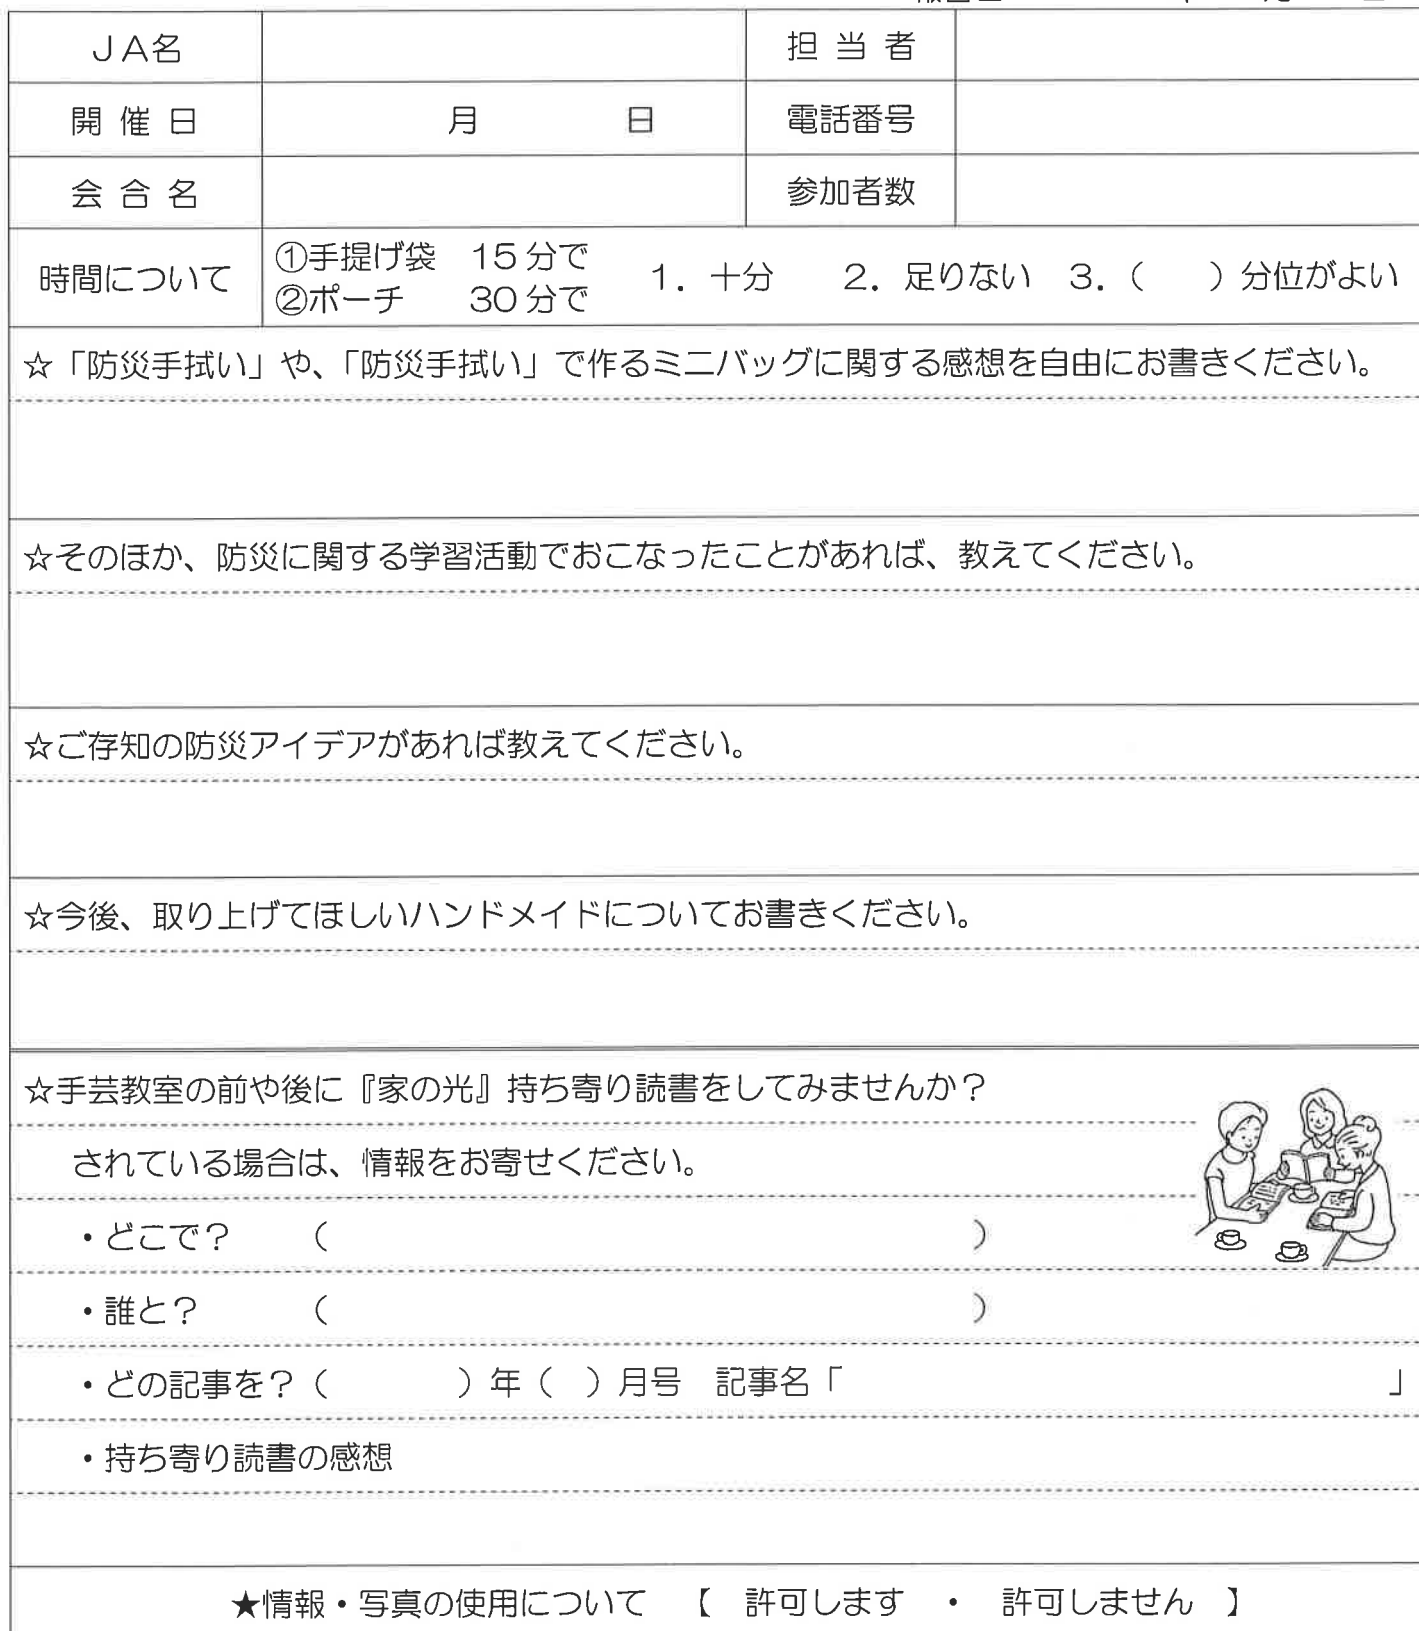 JA名　担当者
開催日　月　日　電話番号
会合名　参加者数
時間について　①手提げ袋　15分で　1．十分　2．足りない　3．（　）分位がよい
②ポーチ　30分で
☆「防災手拭い」や、「防災手拭い」で作るミニバッグに関する感想を自由にお書きください。
☆そのほか、防災に関する学習活動でおこなったことがあれば、教えてください。
☆ご存知の防災アイデアがあれば教えてください。
☆今後、取り上げてほしいハンドメイドについてお書きください。
☆手芸教室の前や後に『家の光』持ち寄り読書をしてみませんか？
されている場合は、情報をお寄せください。
・どこで？　（　）
・誰と？　（　）
・どの記事を？（　）年（　）月号　記事名「　」
・持ち寄り読書の感想
★情報・写真の使用について　【　許可します　・　許可しません　】